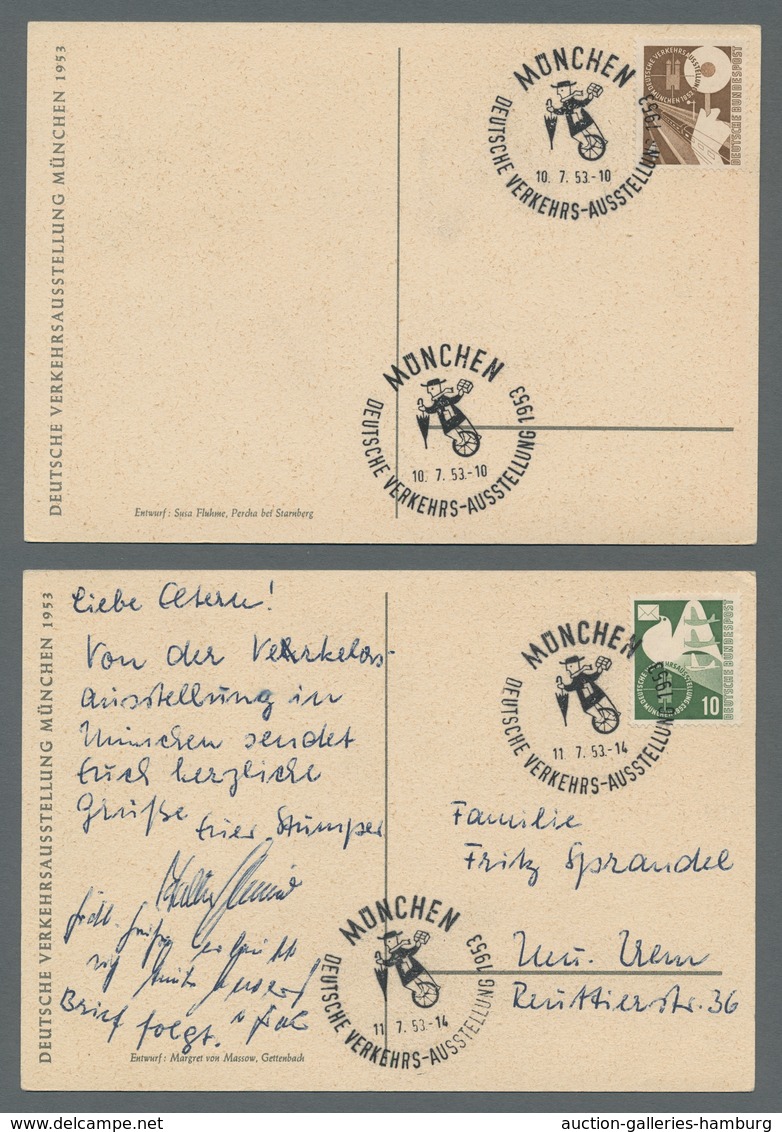 DEUTSCHE VERKEHRSAUSSTELLUNG MÜNCHEN 1953
MÜNCHEN
DEUTSCHE VERKEHRS-AUSSTELLUNG 1953
10. 7. 53.-10
DEUTSCHE VERKEHRSAUSSTELLUNG
MÜNCHEN 1953
DEUTSCHE BUNDESPOST
MÜNCHEN
DEUTSCHE VERKEHRS-AUSSTELLUNG 1953
10. 7. 53.-10
Entwurf: Susa Fluhme, Percha bei Starnberg
DEUTSCHE VERKEHRSAUSSTELLUNG MÜNCHEN 1953
Liebe Eltern!
Von der Verkehrs-
ausstellung in
München sendet
Euch herzliche
Grüße
Euer Stumper
Brief folgt.
Entwurf: Margret von Massow, Gettenbach
MÜNCHEN
DEUTSCHE VERKEHRS-AUSSTELLUNG 1953
11. 7. 53.-14
DEUTSCHE BUNDESPOST
10
Familie
Fritz Sprandel
Neu-Ulm
Reuttierstr. 36
MÜNCHEN
DEUTSCHE VERKEHRS-AUSSTELLUNG 1953
11. 7. 53.-14
www.stampcircuit.com
auction-galleries-hamburg